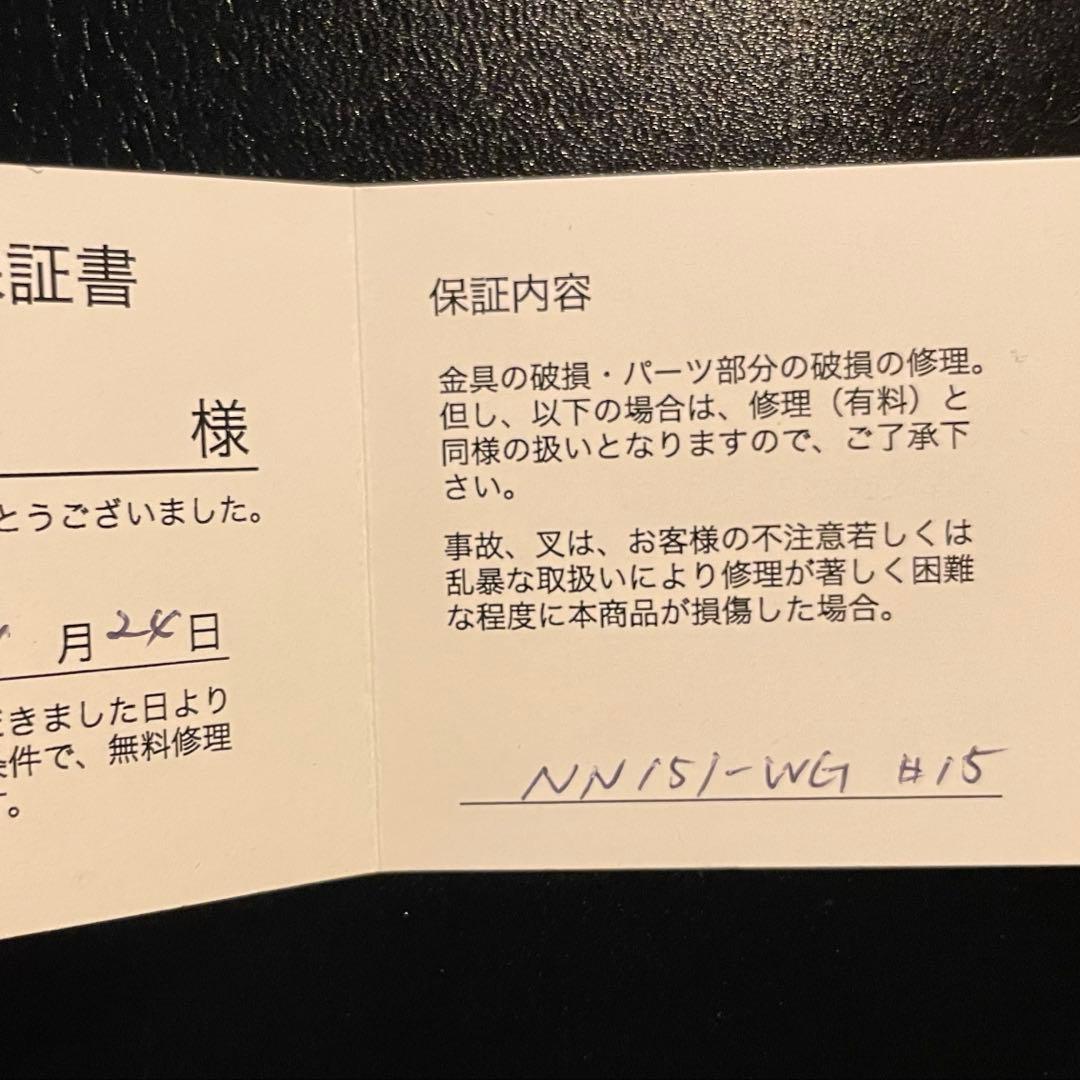 証書
様
とうございました。
月24日
きました日より
件で、無料修理
。
保証内容
金具の破損・パーツ部分の破損の修理。
但し、以下の場合は、修理（有料）と
同様の扱いとなりますので、ご了承下
さい。
事故、叉は、お客様の不注意若しくは
乱暴な取扱いにより修理が著しく困難
な程度に本商品が損傷した場合。
NN151-WG #15